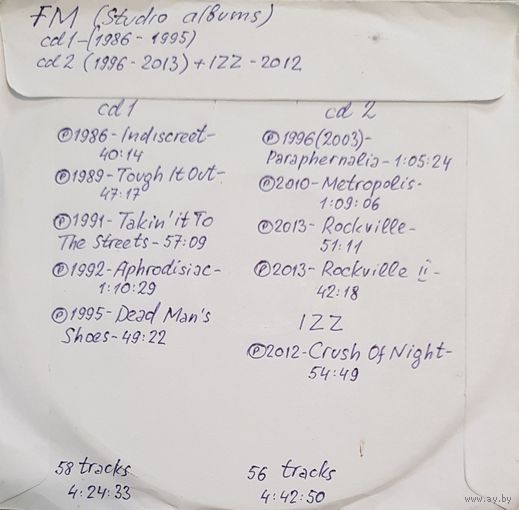 FM (Studio albums)
cd1-(1986-1995)
cd2 (1996-2013)+IZZ-2012
cd1
℗1986-Indiscreet-
40:14
℗1989-Tough It Out-
47:17
℗1991-Takin' it To
The Streets-57:09
℗1992-Aphrodisiac-
1:10:29
℗1995-Dead Man's
Shoes-49:22
58 tracks
4:24:33
cd 2
℗1996(2003)-
Paraphernalia-1:05:24
℗2010-Metropolis-
1:09:06
℗2013-Rockville-
51:11
℗2013-Rockville ii-
42:18
IZZ
℗2012-Crush Of Night-
54:49
56 tracks
4:42:50
www.ay.by